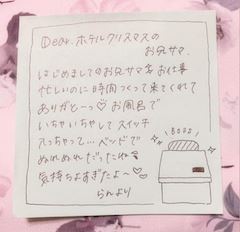 Dear. ホテルクリスマスの
お兄サマ.
はじめましてのお兄サマ お仕事
忙しいのに時間つくって来てくれて
ありがとーっ♡ お風呂で
いちゃいちゃしてスイッチ
入っちゃって...ベッドで
ぬれぬれだったね
気持ちよすぎたよ〜♡
らんより